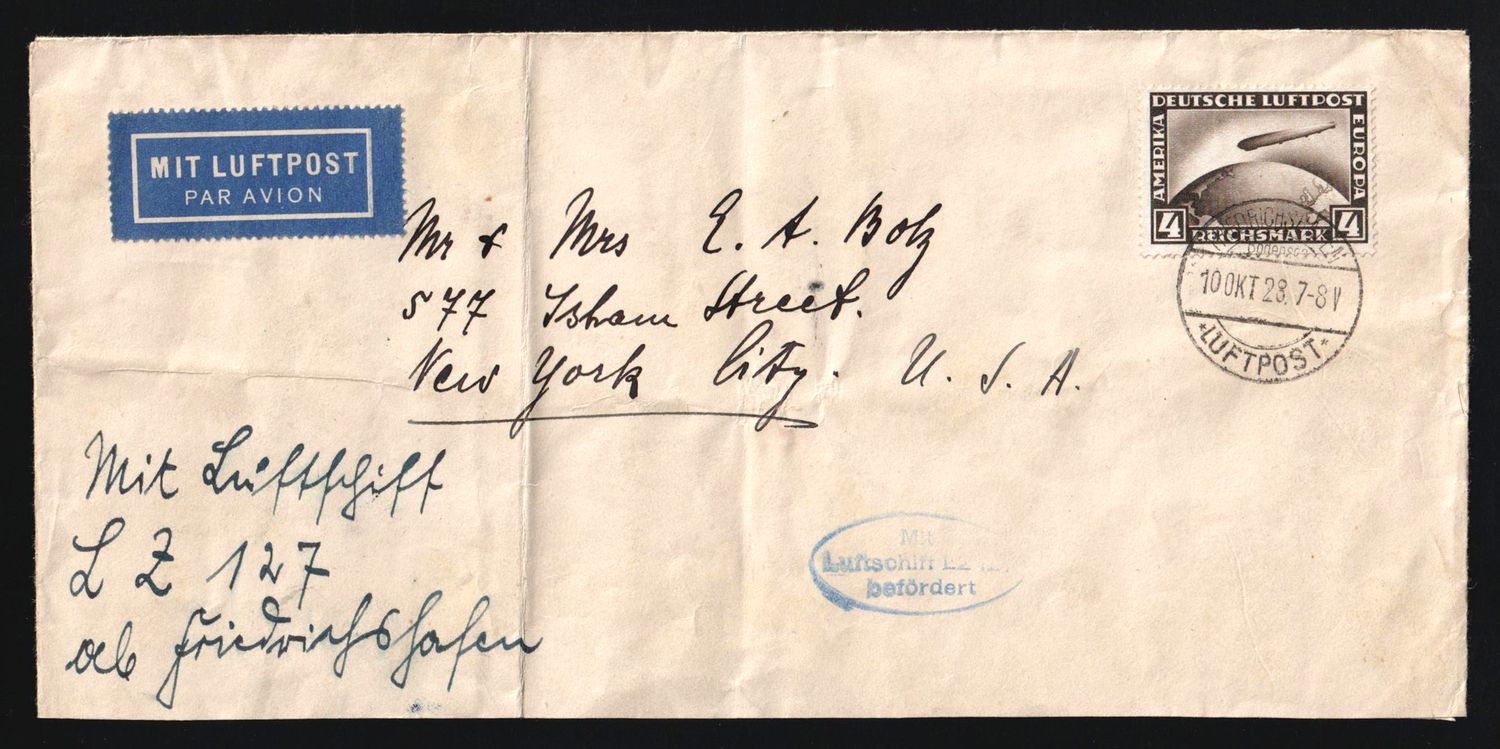 MIT LUFTPOST
PAR AVION
DEUTSCHE LUFTPOST
AMERIKA
EUROPA
4 REICHSMARK 4
FRIEDRICHSHAFEN
Bodensee
10 OKT 28. 7-8 V
*LUFTPOST*
Mr & Mrs E. A. Bolz
577 Isham Street.
New York City. U. S. A.
Mit Luftschiff
L Z 127
ab Friedrichshafen
Mit
Luftschiff LZ 127
befördert